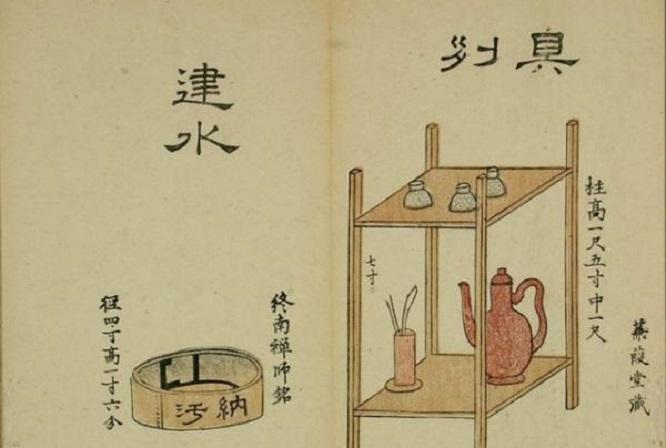 具列
柱高一尺五寸中一尺
蒹葭堂藏
七寸
建水
終南禪師銘
納汚
徑四寸高一寸六分